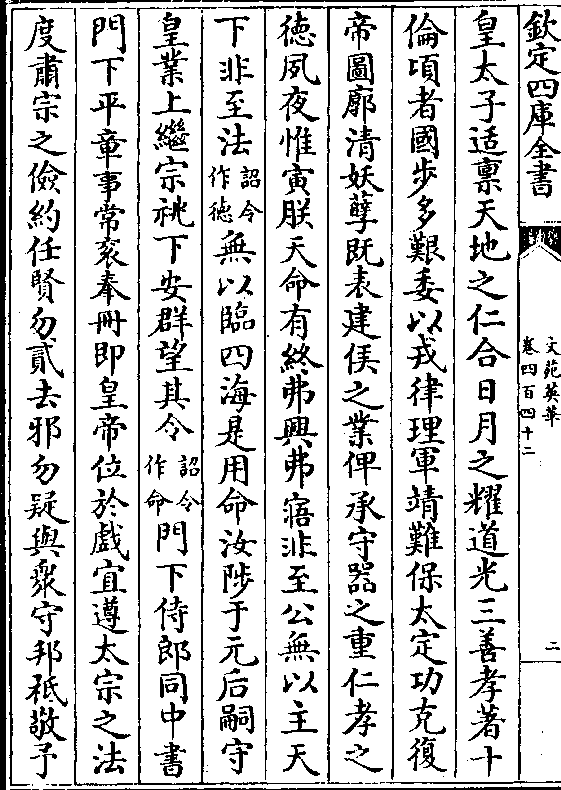 欽定四庫全書
文苑英華
卷四百四十二
二
皇太子适禀天地之仁合日月之耀道光三善孝著十
倫頃者國步多艱委以戎律理軍靖難保太定功克復
帝圖廓清妖孽既表建侯之業俾承守器之重仁孝之
徳夙夜惟寅朕天命有終弗興弗寤非至公無以主天
下非至法詔令作徳無以臨四海是用命汝陟于元后嗣守
皇業上繼宗祧下安群望其令詔令作命門下侍郎同中書
門下平章事常衮奉冊即皇帝位於戲宜遵太宗之法
度肅宗之儉約任賢勿貳去邪勿疑與衆守邦祇敬予